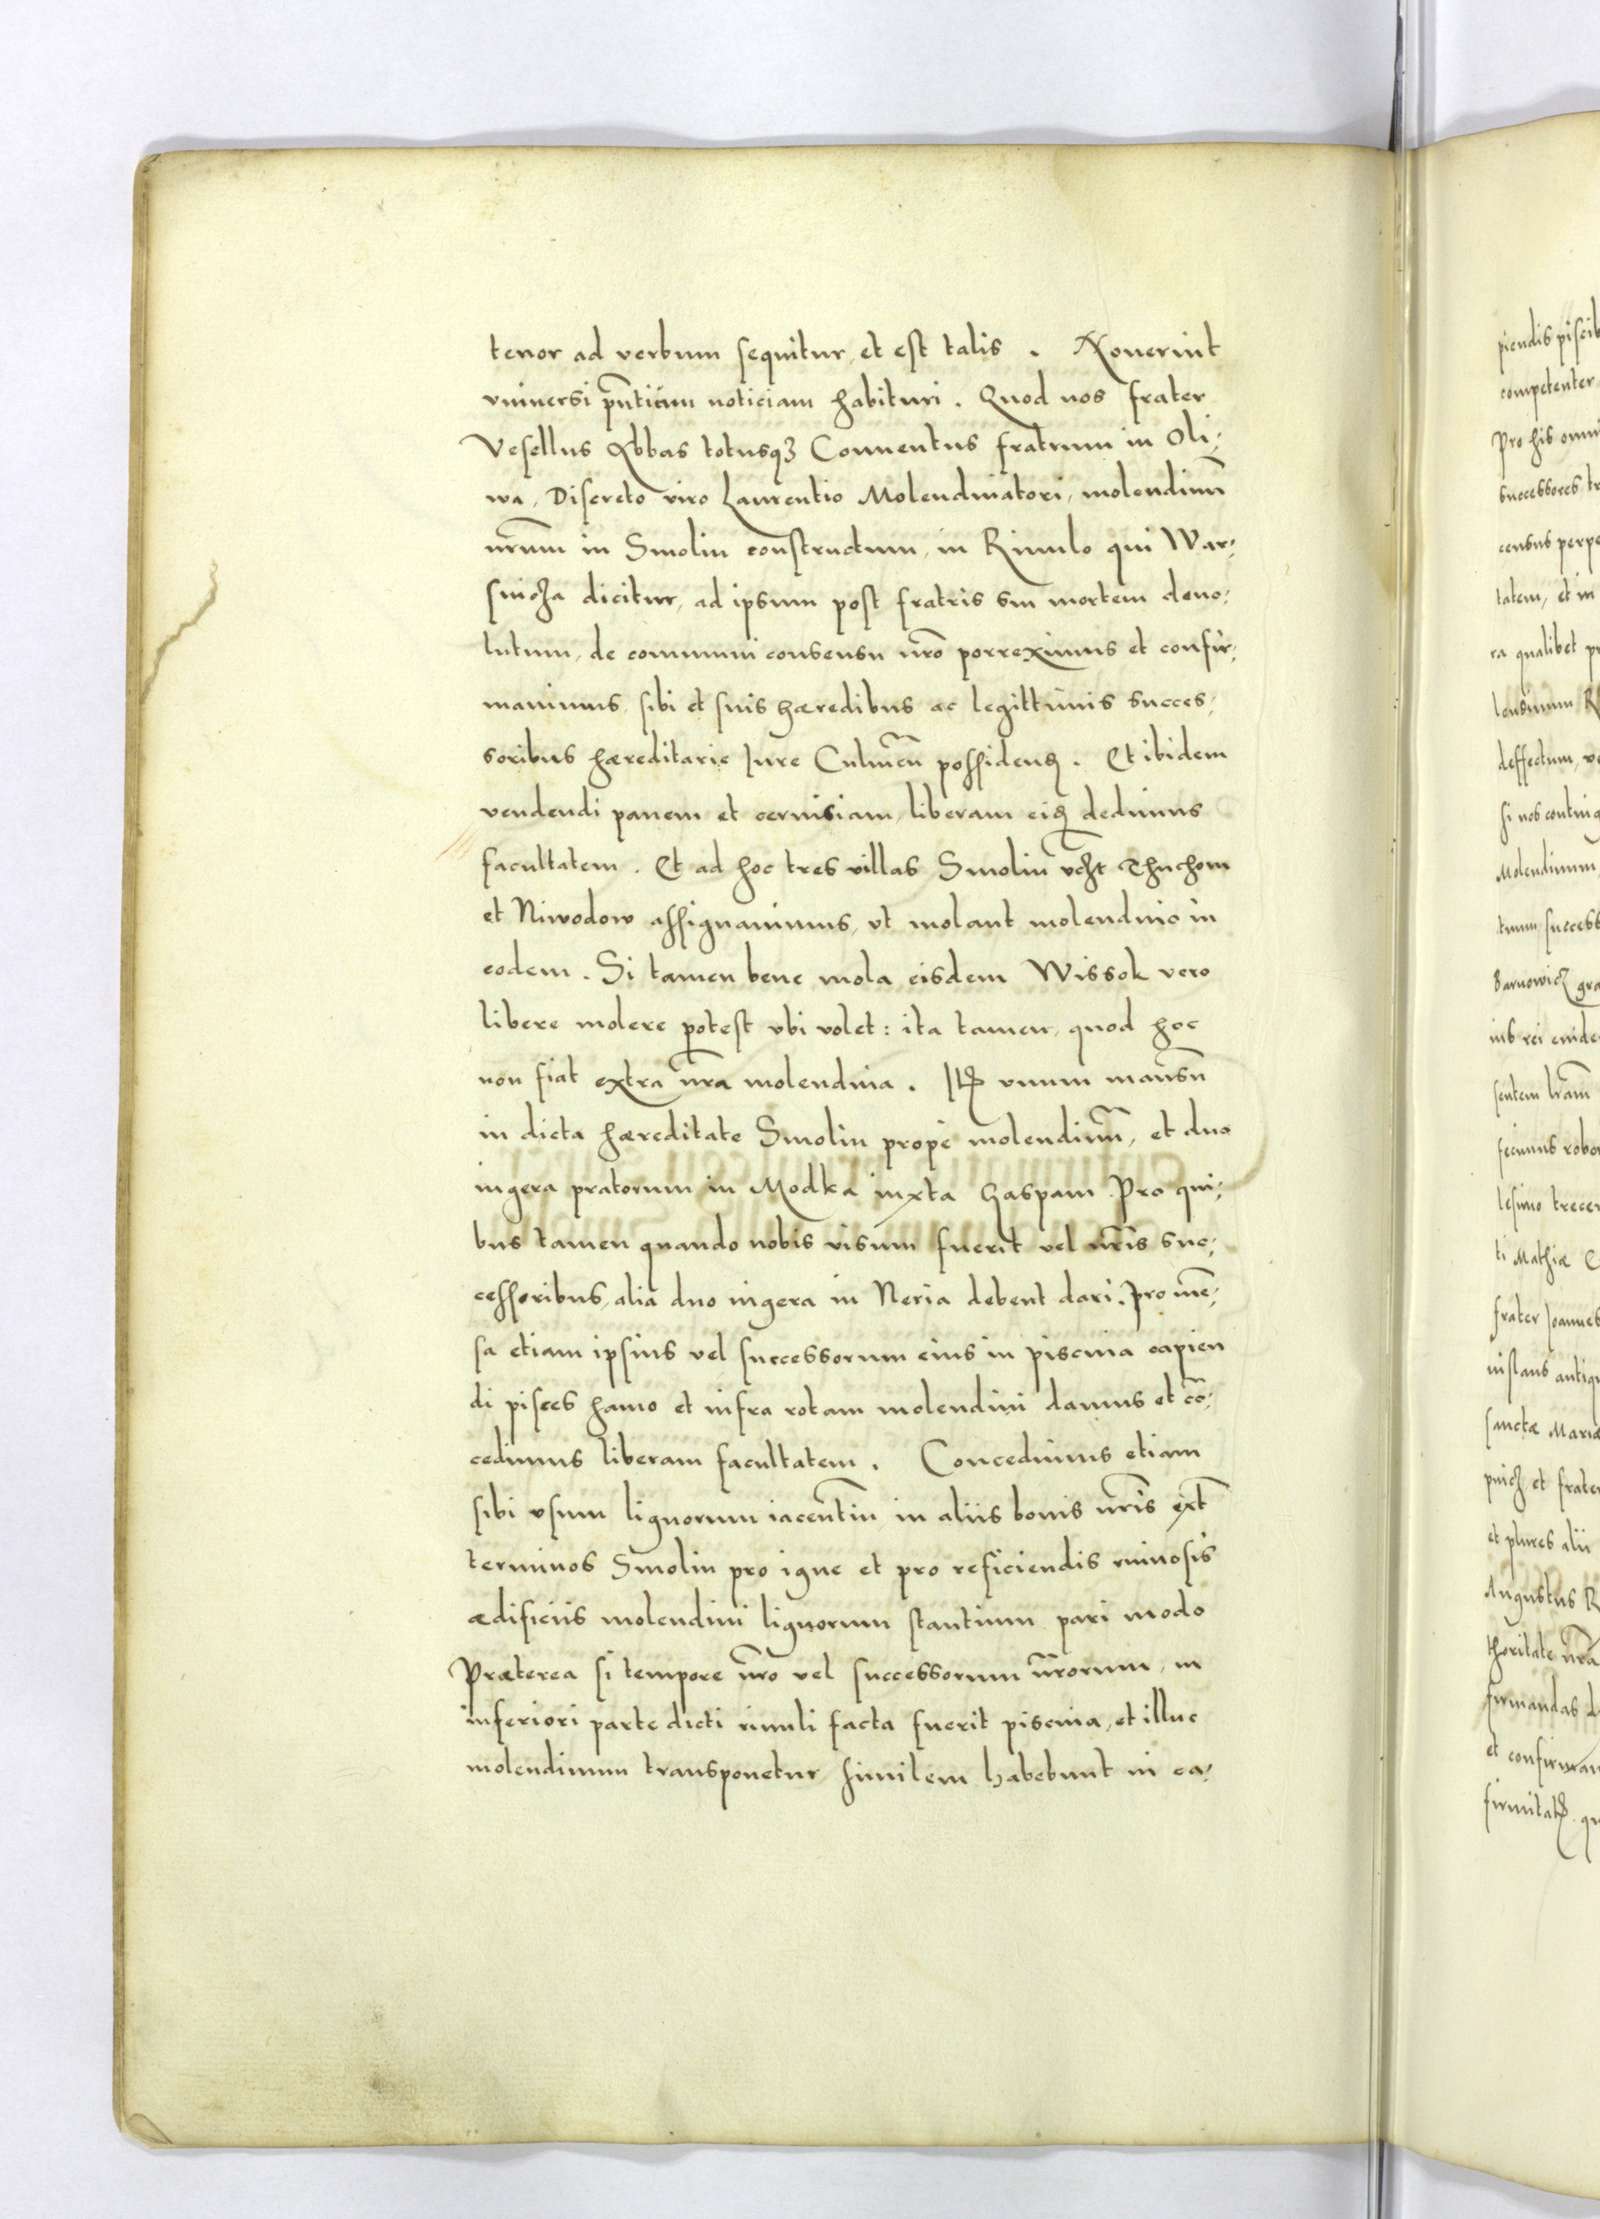 tenor ad verbum sequitur, et est talis. Nouerint
vniuersi pñticum noticiam habituri. Quod nos frater
Vesellus Abbas totusqȝ Conuentus fratrum in Oli-
wa, Discreto viro Laurentio Molendinatori, molendinũ
nr̃um in Smolin constructum, in Riuulo qui War-
snicza dicitur, ad ipsum post fratris sui mortem deuo-
lutum, de communi consensu nr̃o porreximus et confir-
mauimus, sibi et suis hæredibus ac legittimis succes-
soribus hæreditarie Iure Culmeñ possidenꝫ. Et ibidem
vendendi panem et ceruisiam, liberam eiꝫ dedimus
facultatem. Et ad hoc tres villas Smolin vcꝫt Thuchom
et Niwodow assignauimus, vt molant molendino in
eodem. Si tamen bene mola eisdem Wissok vero
libere molere potest vbi volet: ita tamen, quod hoc
non fiat extra nr̃a molendina. Itꝫ vnum mansũ
in dicta hæreditate Smolin prope molendinũ, et duo
iugera pratorum in Modka iuxta Gaspam. Pro qui-
bus tamen quando nobis visum fuerit vel nr̃is suc-
cessoribus, alia duo iugera in Neria debent dari. Pro mẽ-
sa etiam ipsius vel successorum eius in piscina capien
di pisces hamo et infra rotam molendini damus et cõ-
cedimus liberam facultatem. Concedimus etiam
sibi vsum lignorum iacentiũ in aliis bonis nr̃is ext̃
terminos Smolin pro igne et pro reficiendis ruinosis
ædificiis molendini lignorum stantium pari modo
Præterea si tempore nr̃o vel successorum nr̃orum, in
inferiori parte dicti riuuli facta fuerit piscina, et illuc
molendinum transponetur similem habebunt in ea-
piendis piscib
competenter
Pro his omni
successores tr
census perpe
tatem, et in
ra qualibet pr
lensium
deffectum, ve
si nos conting
Molendinum
tuum success
Barnowicz gra
ius rei euide
sentem lr̃am
fecimus robor
lesimo trecen
ti Mathiæ
frater Joannes
instans antiqu
sanctæ Mariæ
et frater
et plures alii
Augustus R
thoritate nr̃a
firmandas
et confirman
firmitatꝫ qu